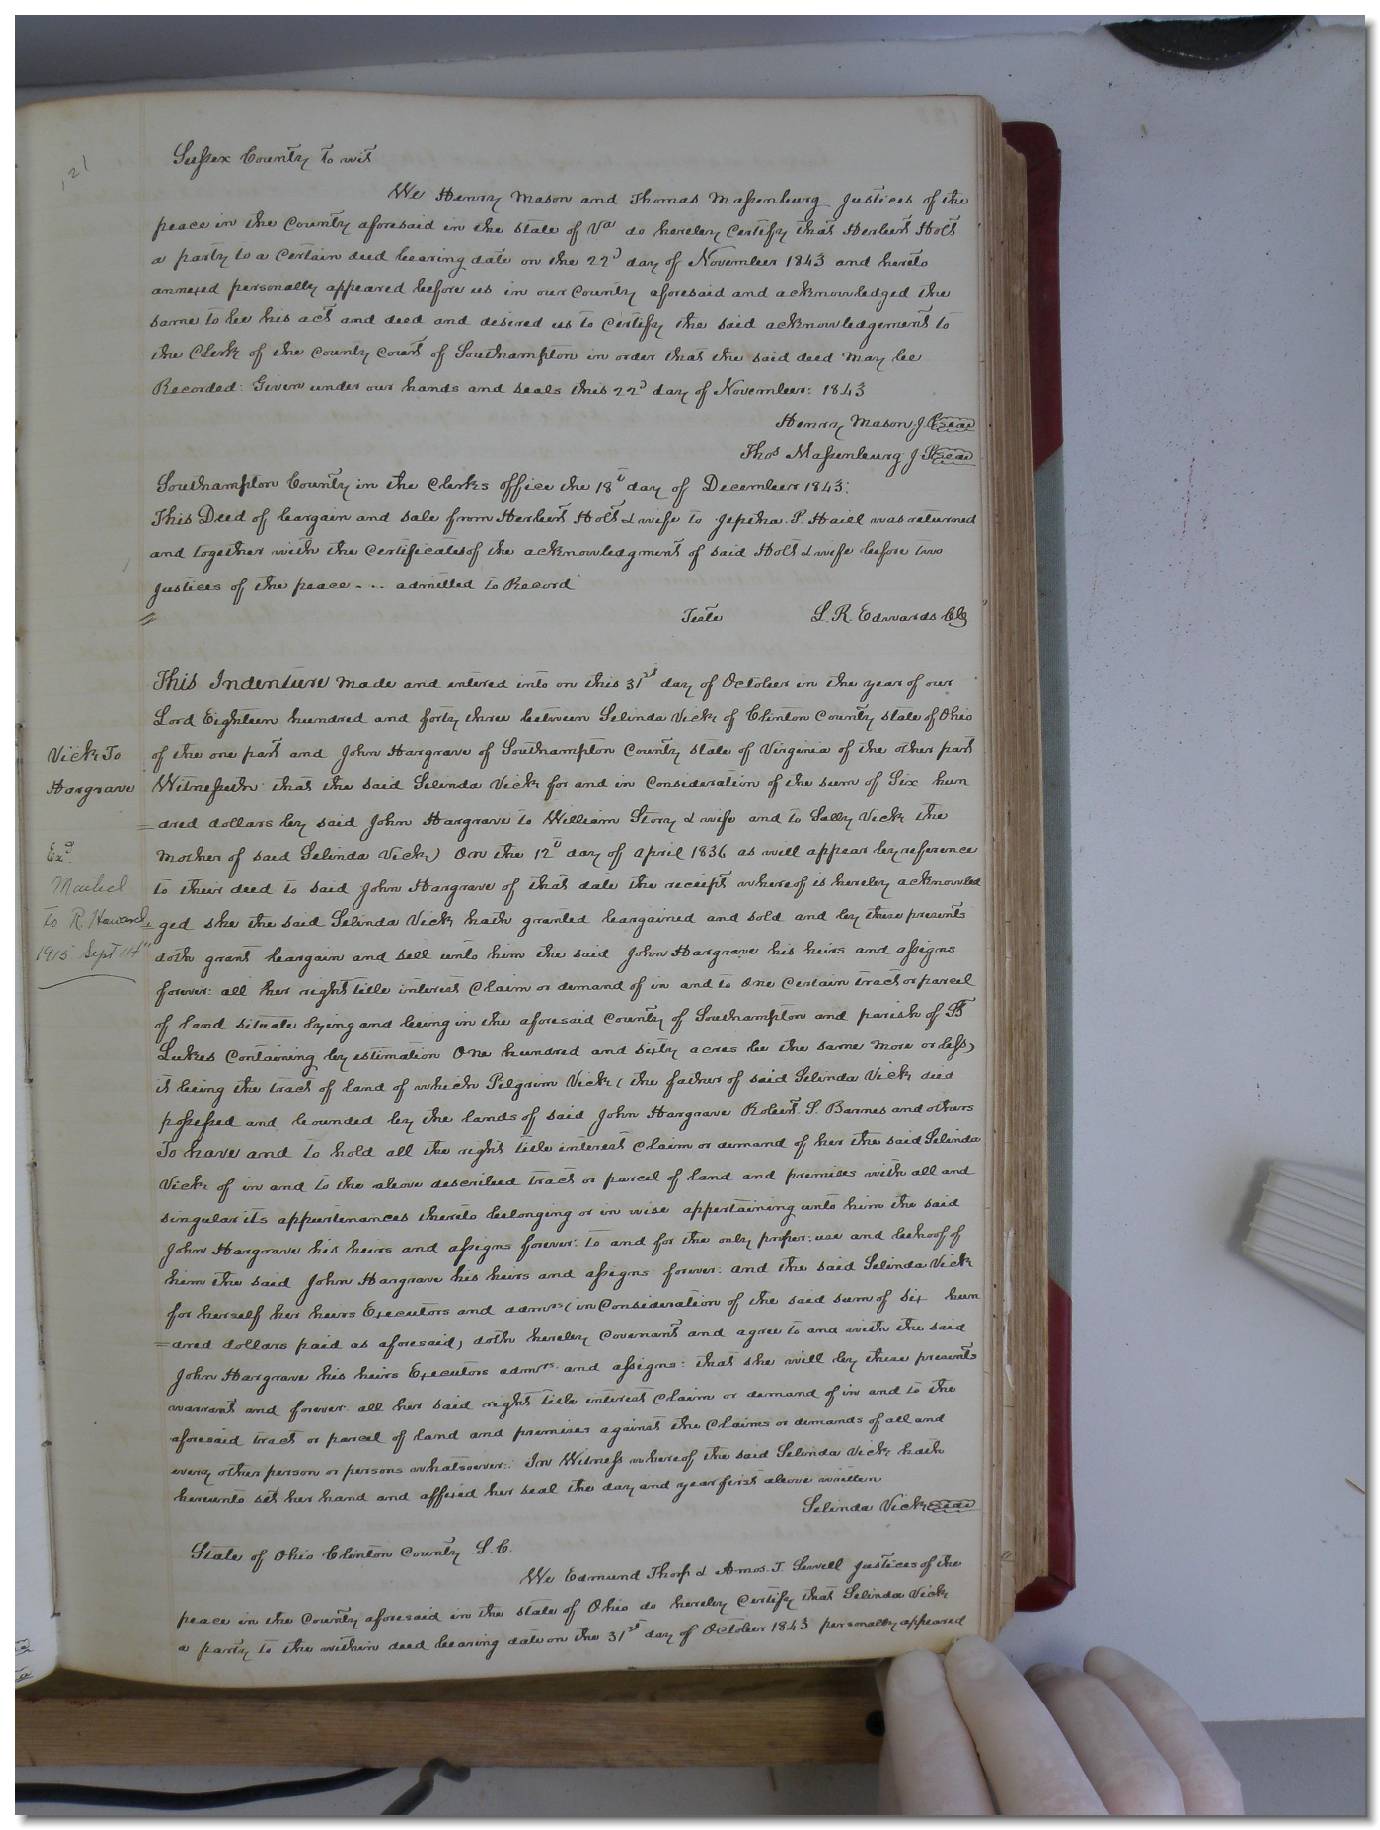 121
Sussex County to wit
We Henry Mason and Thomas Massenburg Justices of the
peace in the County aforesaid in the state of Va do hereby Certify that Herbert Holt
a party to a Certain deed bearing date on the 22d day of November 1843 and hereto
annexed personally appeared before us in our County aforesaid and acknowledged the
same to be his act and deed and desired us to Certify the said acknowledgement to
the Clerk of the County Court of Southampton in order that the said deed may be
Recorded: Given under our hands and seals this 22d day of November: 1843
Henry Mason J.P. Seal
Thos Massenburg J P Seal
Southampton County in the Clerks office the 18th day of December 1843:
This Deed of bargain and sale from Herbert Holt & wife to Jeptha. P. Haill was returned
and together with the Certificates of the acknowledgment of said Holt & wife before two
Justices of the peace - .. admitted to Record
Teste L. R. Edwards Clk
This Indenture made and entered into on this 31st day of October in the year of our
Lord Eighteen hundred and forty three between Selinda Vick of Clinton County state of Ohio
Vick To
of the one part and John Hargrave of Southampton County state of Virginia of the other part
Hargrave
Witnesseth that the said Selinda Vick for and in Consideration of the sum of Six hun
=dred dollars by said John Hargrave to William Story & wife and to Sally Vick the
Exd
mother of said Selinda Vick) On the 12th day of April 1836 as will appear by reference
to their deed to said John Hargrave of that date the receipt whereof is hereby acknowled
to R.
=ged she the said Selinda Vick hath granted bargained and sold and by these presents
1915 Sept 14"
doth grant bargain and sell unto him the said John Hargrave his heirs and assigns
forever: all her right title interest Claim or demand of in and to One Certain tract or parcel
of land situate lying and being in the aforesaid County of Southampton and parish of St
Lukes Containing by estimation One hundred and sixty acres be the same more or less)
it being the tract of land of which Pilgrim Vick ( the father of said Selinda Vick died
possessed and bounded by the lands of said John Hargrave Robert. S. Barnes and others
To have and to hold all the right title interest Claim or demand of her the said Selinda
Vick of in and to the above described tract or parcel of land and premises with all and
singular its appurtenances thereto belonging or in wise appertaining unto him the said
John Hargrave his heirs and assigns forever: to and for the only proper: use and behoof of
him the said John Hargrave his heirs and assigns forever: and the said Selinda Vick
for herself her heirs Executors and admrs (in Consideration of the said sum of six hun
=dred dollars paid as aforesaid) doth hereby Covenant and agree to and with the said
John Hargrave his heirs Executors admrs. and assigns: that she will by these presents
warrant and forever all her said right title interest Claim or demand of in and to the
aforesaid tract or parcel of land and premises against the Claims or demands of all and
every other person or persons whatsoever: In Witness whereof the said Selinda Vick hath
hereunto set her hand and affixed her seal the day and year first above written
Selinda Vick Seal
State of Ohio Clinton County S.C.
We Edmund Thorp & Amos. T. Sewell Justices of the
peace in the County aforesaid in the state of Ohio do hereby Certify that Selinda Vick
a party to the within deed bearing date on the 31st day of October 1843 personally appeared